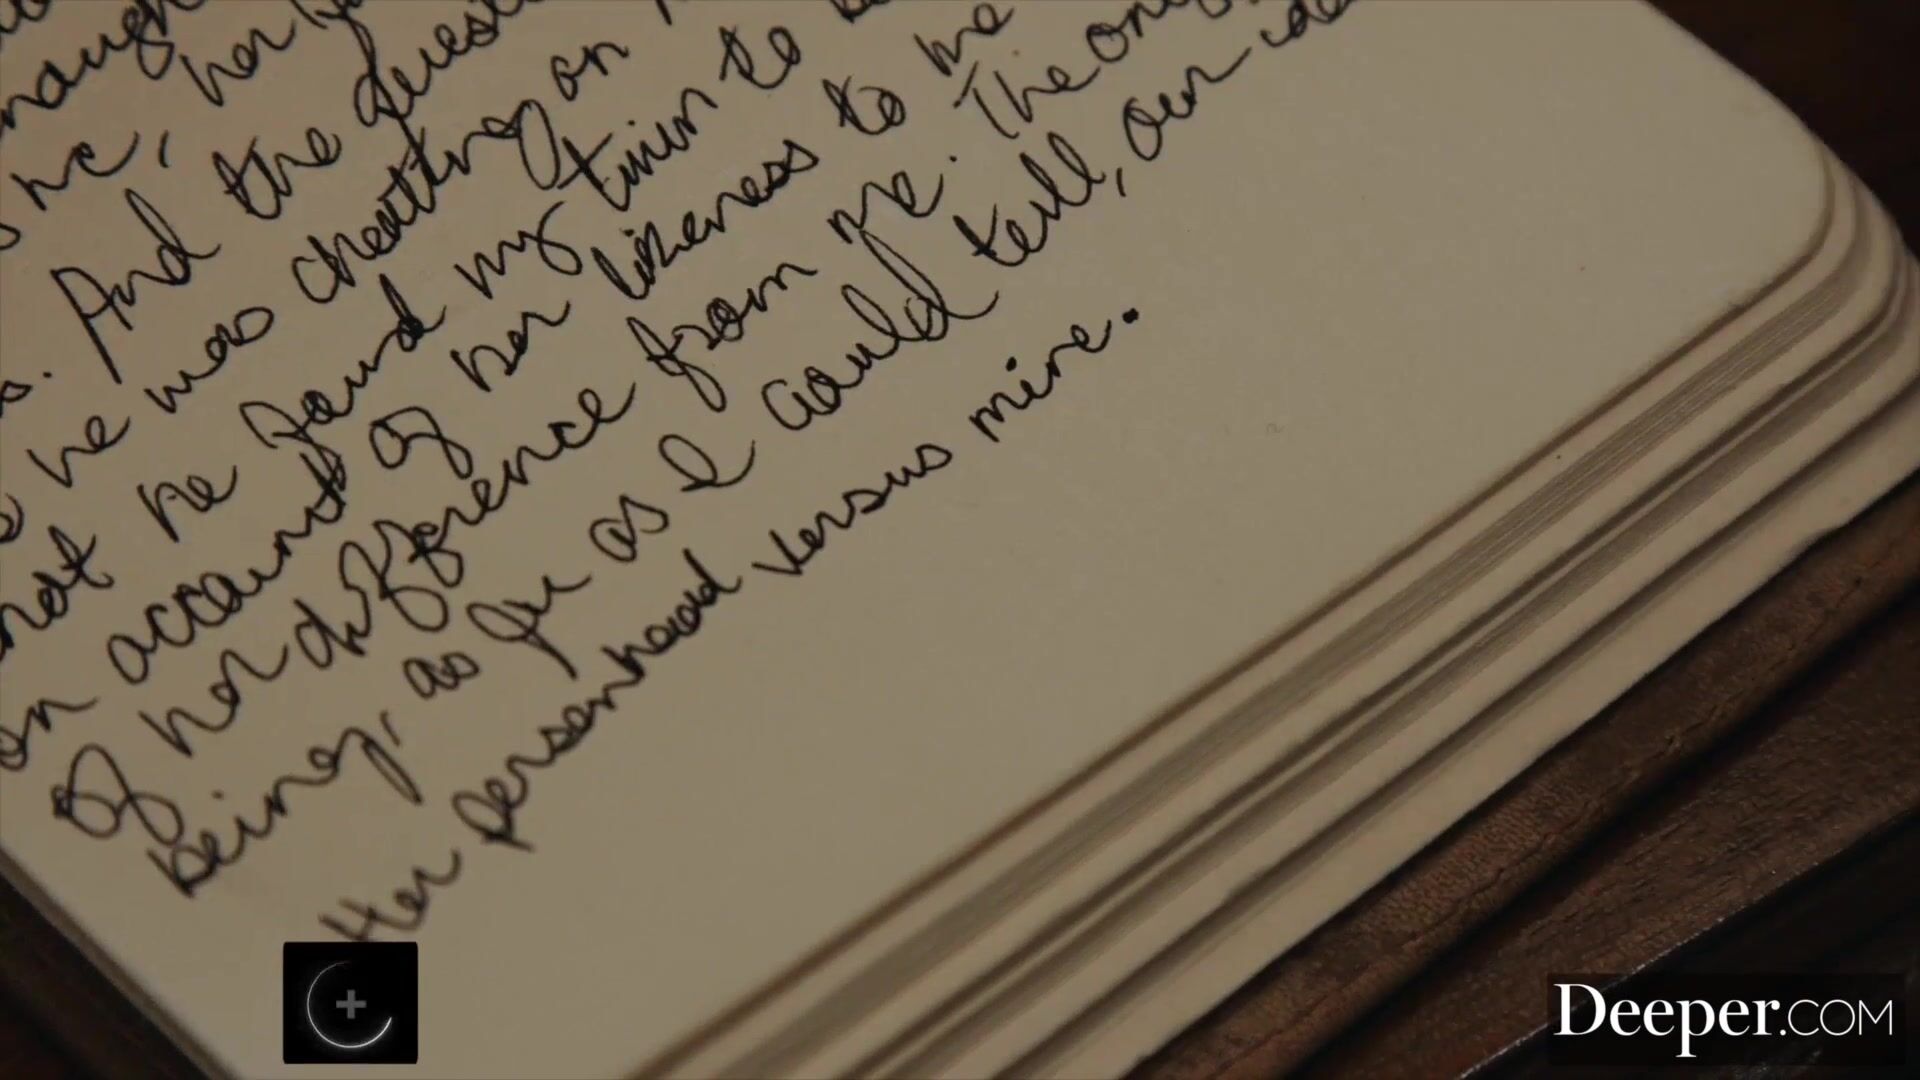 he, her
And the
he was cheating on
not he found my twin to
on account of her likeness to me
of her difference from me. The only
being, as far as I could tell, our
Her personhood versus mine.
Deeper.COM